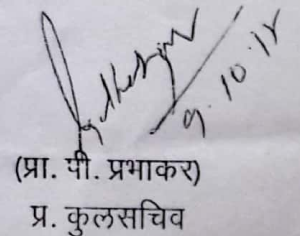 9.10.12
(प्रा. पी. प्रभाकर)
प्र. कुलसचिव